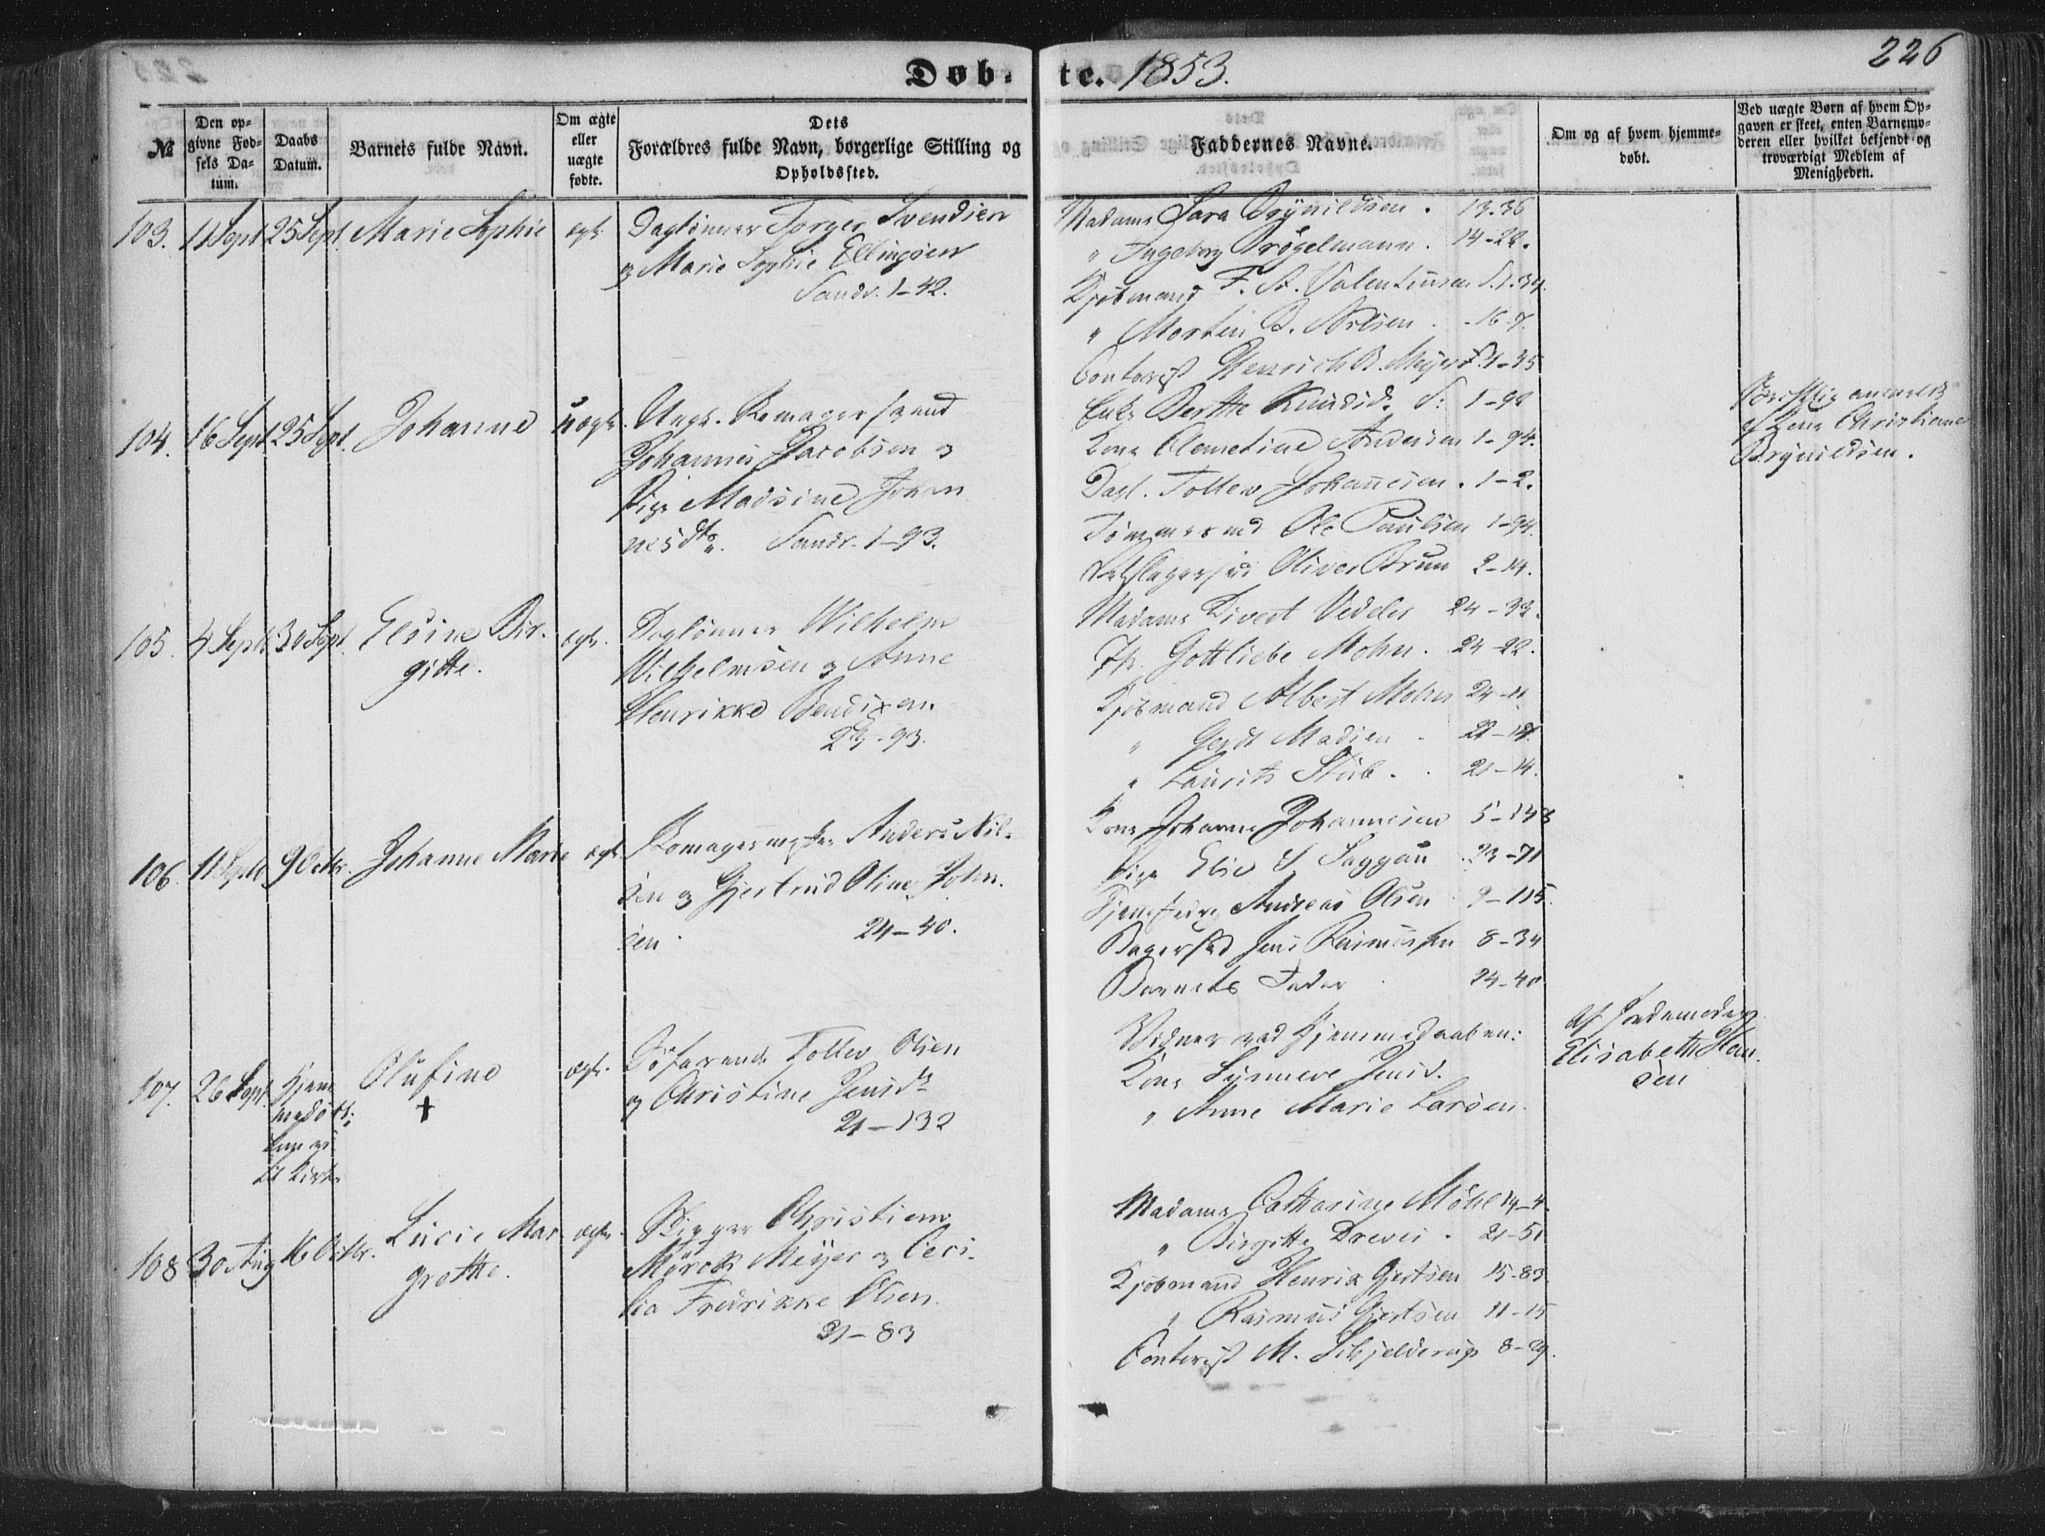 Døbte. 1853.
226
№
Den opgivne Fødsels Datum.
Daabs Datum.
Barnets fulde Navn.
Om ægte eller uægte fødte.
Dets Forældres fulde Navn, borgerlige Stilling og Opholdssted.
Faddernes Navne.
Om og af hvem hjemmedøbt.
Ved uægte Børn af hvem Opgaven er skeet, enten Barnemoderen eller hvilket bekjendt og troværdigt Medlem af Menigheden.
103. 11 Sept 25 Sept. Marie Sophie ægte
Daglønner Torger Svendsen
og Marie Sophie Ellingsen
Sandv. 1-42.
Madame Sara Brynildsen. 13.36
" Ingeborg Prögelmann. 14-22.
Kjøbmand F. A. Valentinsen S. 1.34.
" Morten B. Nilsen. 16-7.
Contorist Henrich B. Meyer S. 1-35
104. 16 Sept 25 Sept. Johanne uægte.
Ungk. Komagersvend
Johannes Jacobsen og
Pige Madsine Johan
nesdtr. Sandv. 1-93.
Enke Berthe Knudsd. S: 1-92
Kone Clemetine Andersen 1-94.
Dagl. Tollev Johannesen. 1-2.
Tømmermd Ole Paulsen 1-94.
Oliver Brun 2-14.
anmeldt
af Kone Christiane
Brynildsen.
105. 4 Sept. 30 Sept. Elsine Bir-
gitte. ægte.
Daglønner Wilhelm
Wilhelmsen og Anne
Henrikke Bendixen.
23-93.
Madame Sivert Vedeler 24-33.
Jfr. Gottliebe Mohn. 24-22.
Kjøbmand Albert Mohn 24-11
" Gerdt Madsen
" Laurits Stub. 21-14.
106. 11 Sept. 9 Octbr. Johanne Marie ægte
Komagermester Anders Nil-
sen og Gjertrud Oline John-
sen. 24-40.
Kone Johanne Johannesen 5-148
Pige Elise S Saggau 23-71
Andreas Olsen 9-115.
Bagersvd Jens Rasmussen 8-34
Barnets Fader 24-40
107. 26 Sept. Hjem
medøbt;
til Kirke
Olufine
+
ægte.
Søfarende Tollev Olsen
og Christine Jensdr
21-132
Vidner ved Hjemmedaaben:
Kone Synneve Jensd.
" Anne Marie Larsen.
af Jordemoder
Elisabeth Han
sen
108 30 Aug 16 Octbr. Lucie Mar
grethe. ægte.
Christian
Mørck Meyer og Ceci-
lia Fredrikke Olsen.
21-83
Madame Catharine Möhl 14-4.
" Birgitte Drewes. 21-51
Kjøbmand Henrik Gjertsen 15-83.
" Rasmus Gjertsen 11-15
Contorist M. Schjelderup 8-29.